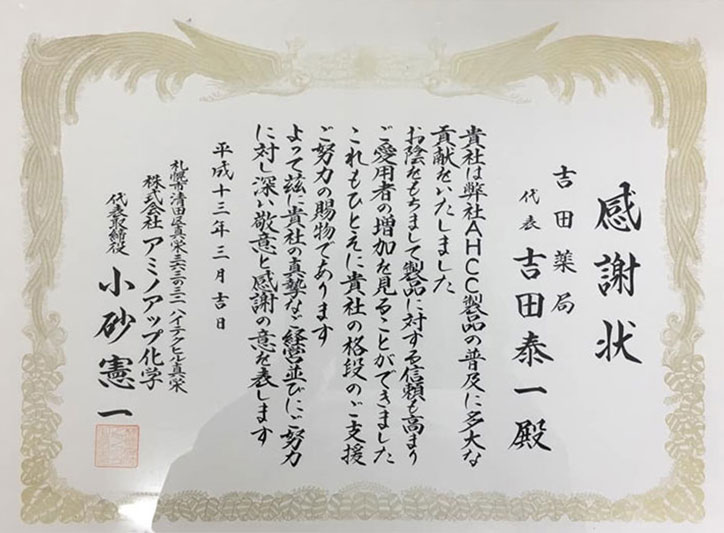 感謝状
吉田薬局
代表 吉田泰一殿
貴社は弊社AHCC製品の普及に多大な
貢献をいたしました
お陰をもちまして製品に対する信頼も高まり
ご愛用者の増加を見ることができました
これもひとえに貴社の格段のご支援
ご努力の賜物であります
よって茲に貴社の真摯なご経営並びにご努力
に対し深い敬意と感謝の意を表します
平成十三年三月吉日
札幌市清田区真栄三六三の三二 ハイテクヒル真栄
株式会社 アミノアップ化学
代表取締役 小砂憲一